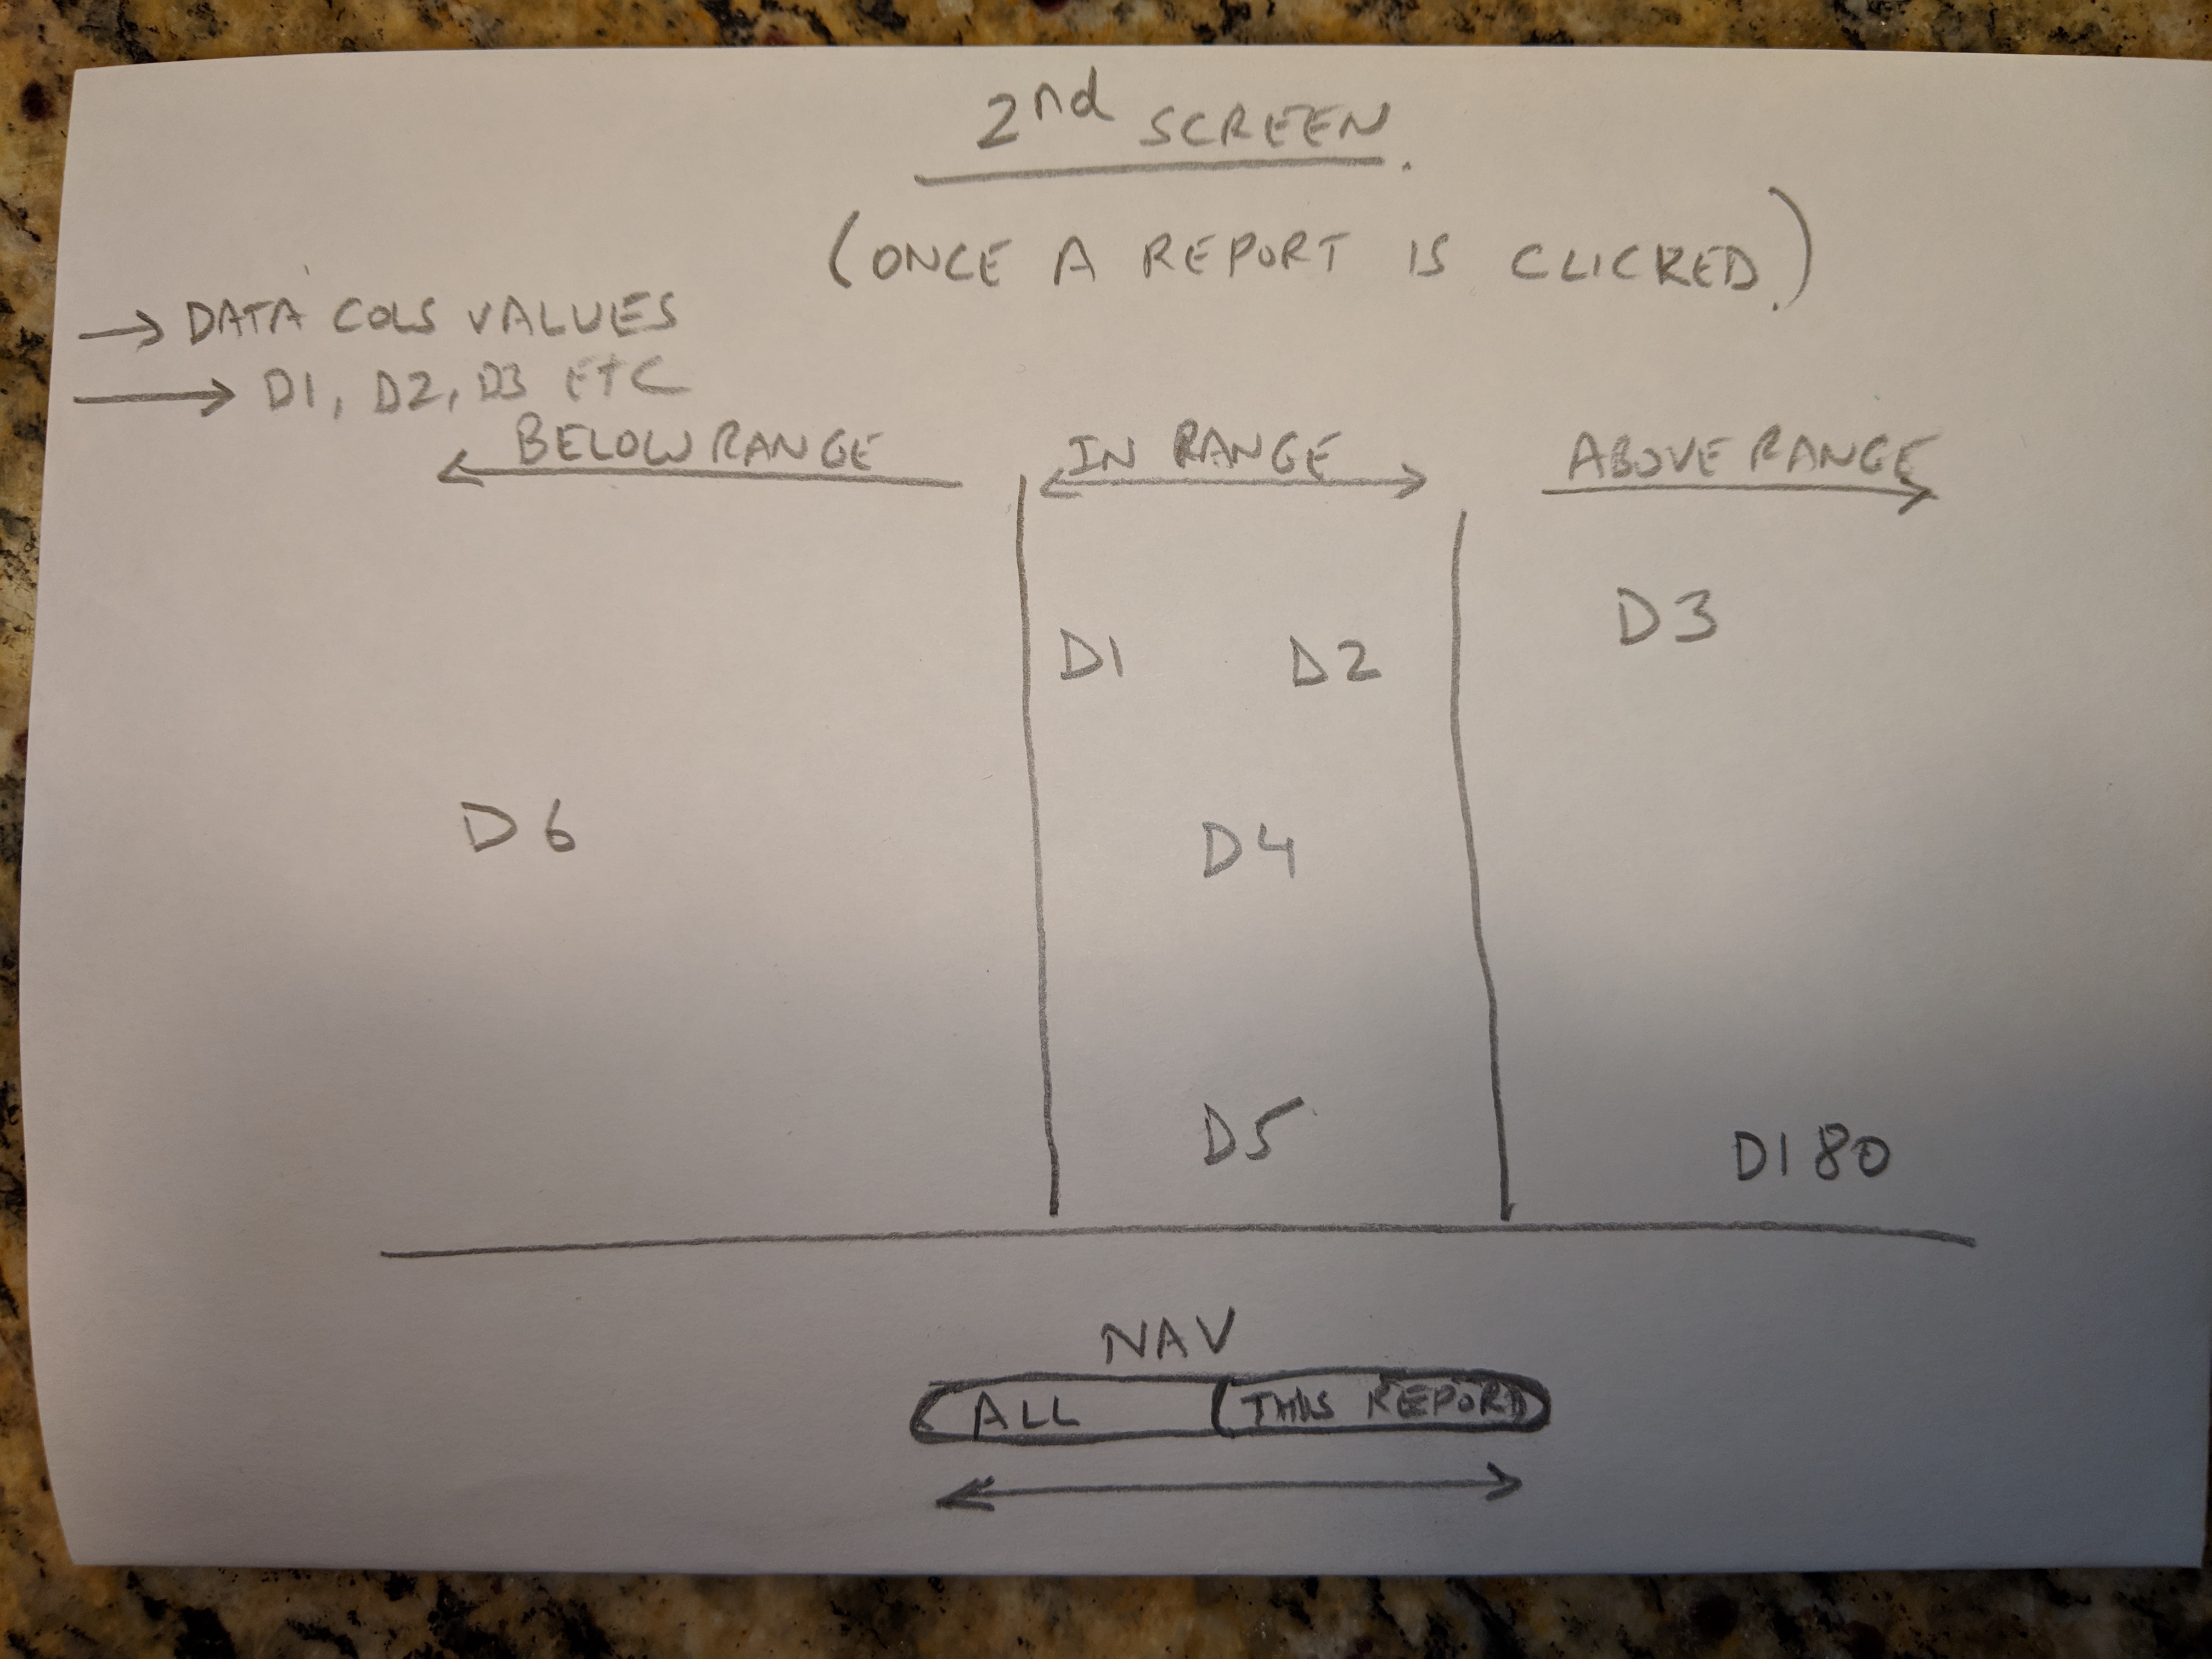 2nd SCREEN.
(ONCE A REPORT IS CLICKED.)
→ DATA COLS VALUES
→ D1, D2, D3 ETC
BELOW RANGE
IN RANGE
ABOVE RANGE
D3
D1 D2
D6
D4
D5
D180
NAV
ALL
THIS REPORT